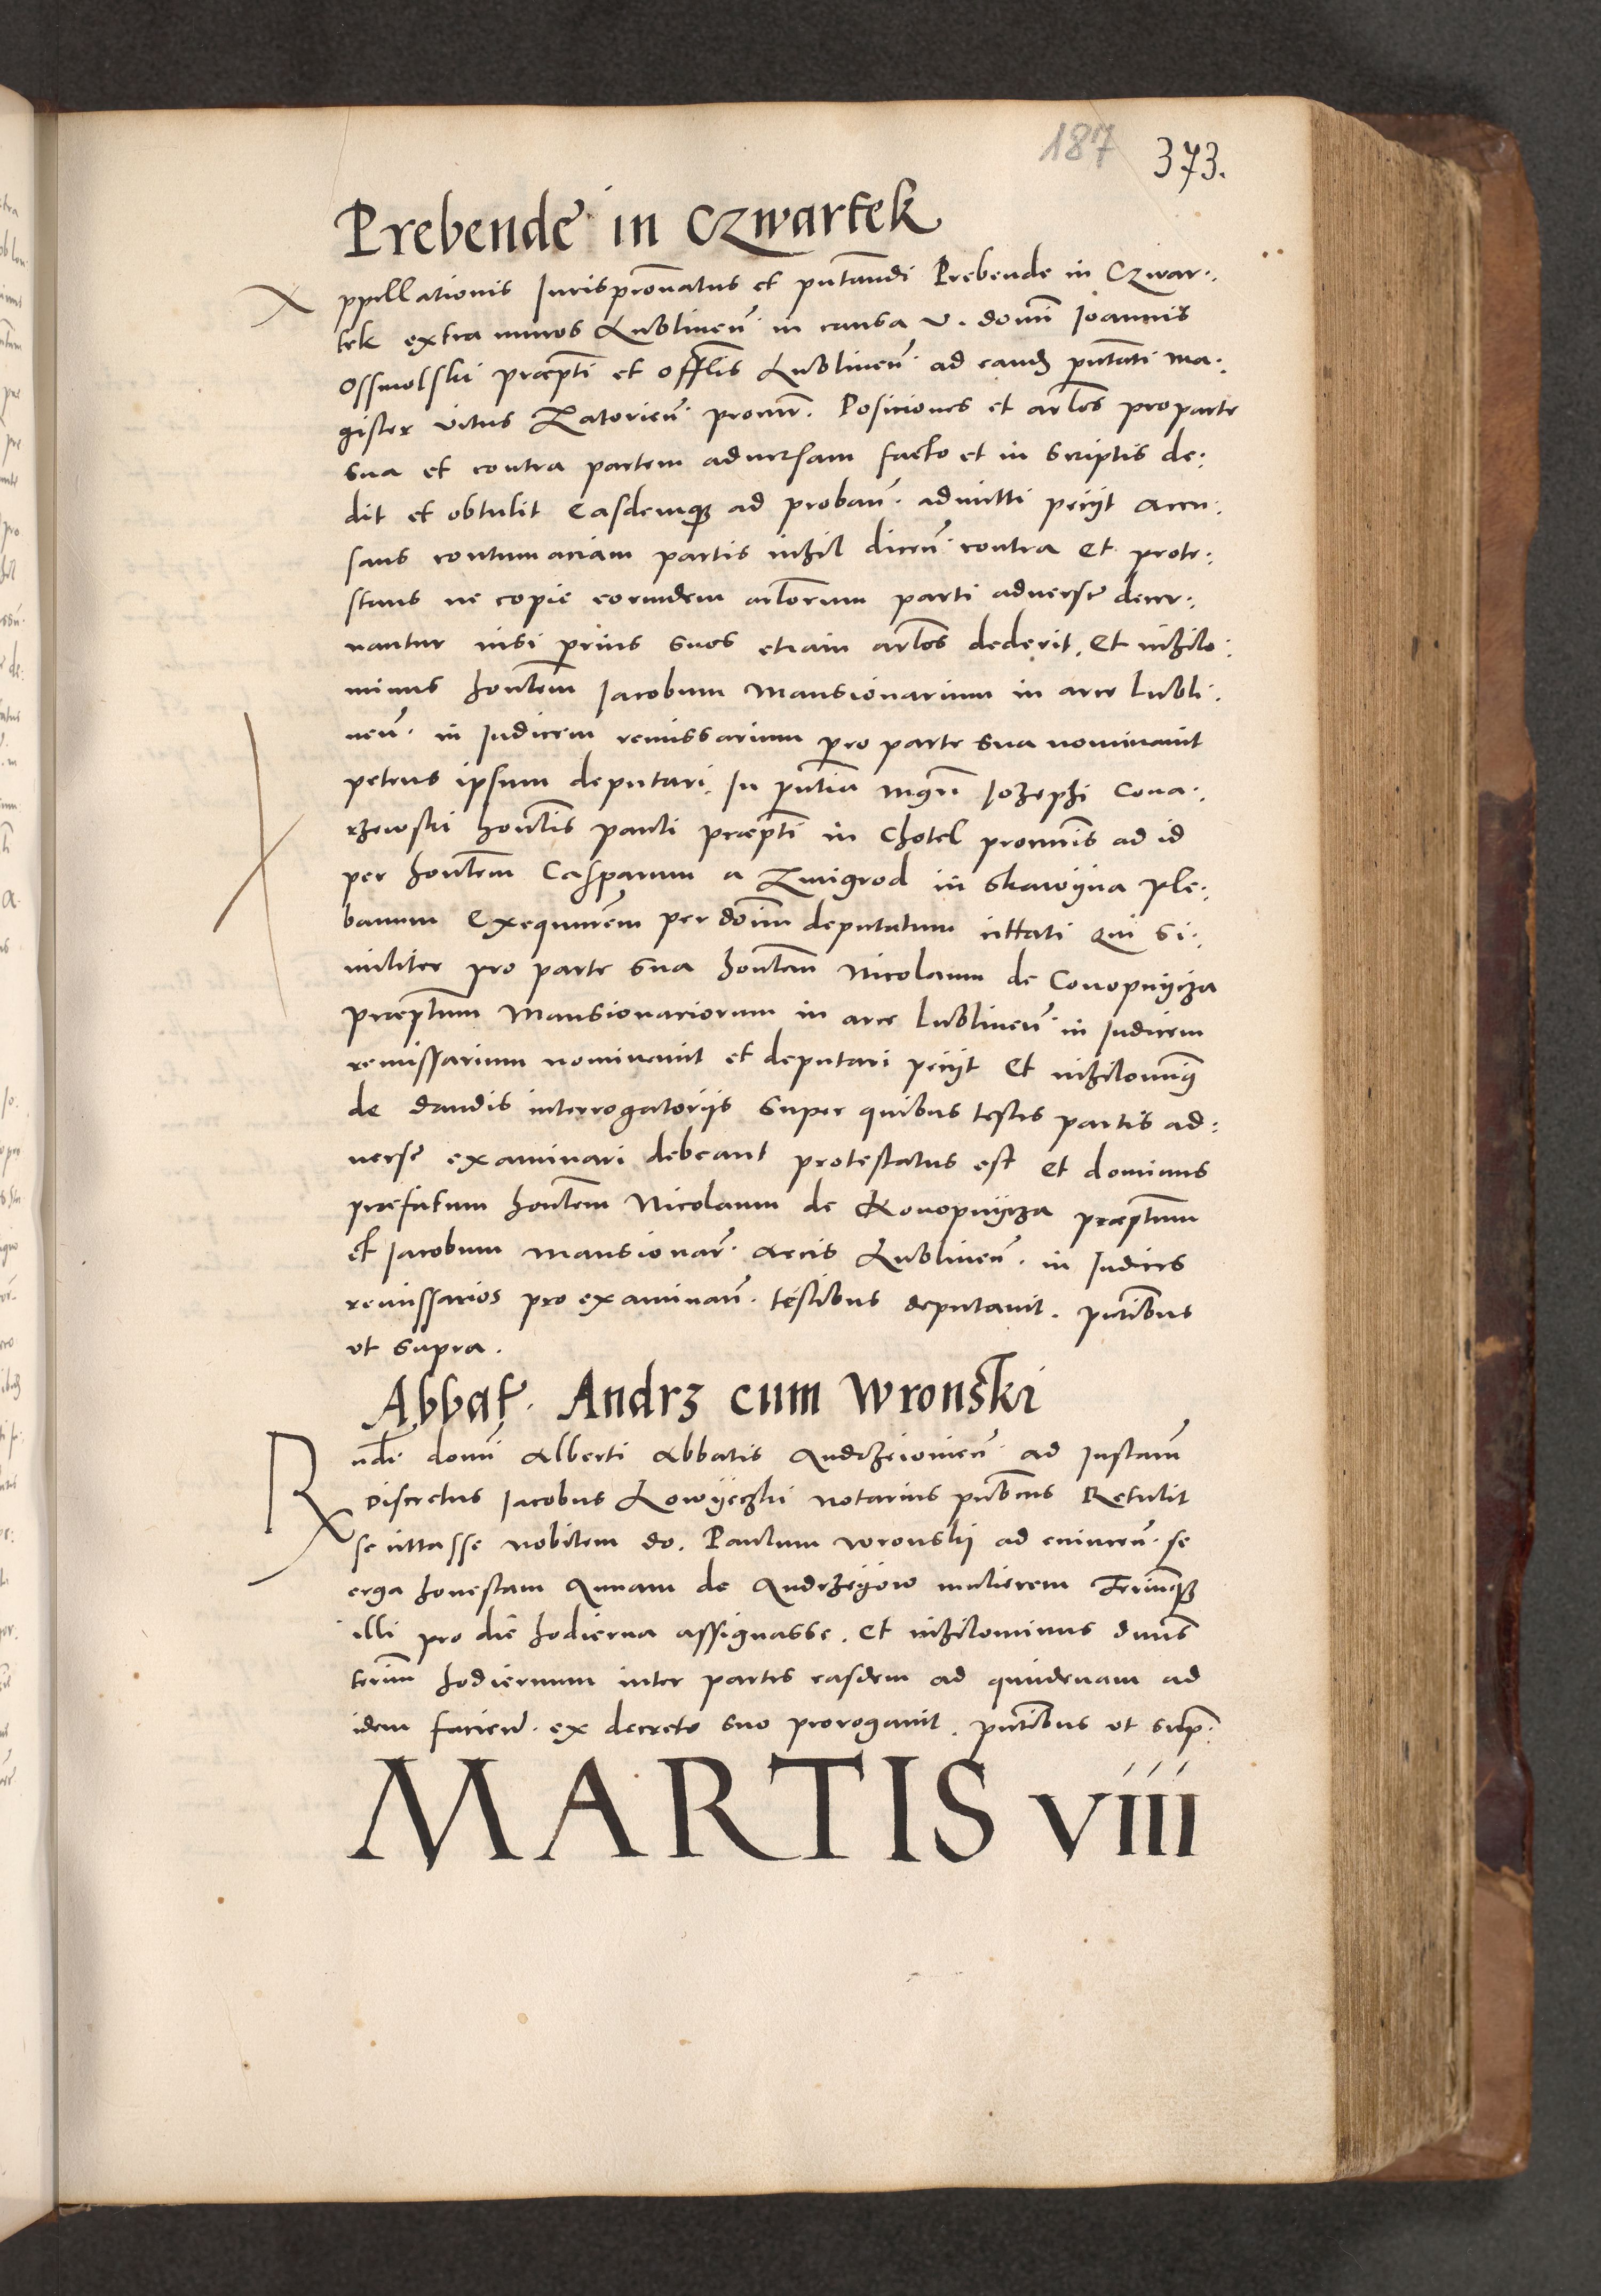 187 373.
Prebende in Czwartek
Appellationis Jurispronatus et pntandi Prebende in Czwar:
tek extra muros Lublinen̄ in causa v. domi Joannis
Ossmolski præpti et offlis Lublinen̄ ad eandem pntati ma:
gister vitus Zatorien̄ procur. Posiciones et artlos pro parte
sua et contra partem adversam facto et in scriptis de:
dit et obtulit Easdemque ad proban̄ admitti peciit accu:
sans contumaciam partis nihil dicen̄ contra et prote:
stans ne copie eorundem artlorum parti adverse decer:
nantur nisi prius suos etiam artlos dederit. Et nihilo:
minus hontem Jacobum Mansionarium in arce Lubli:
nen̄ in Judicem remissarium pro parte sua nominavit
petens ipsum deputari. In pntia mgri Jozephi Cona:
rzewski hontis pauli præpti in Chotel procuris ad id
per hontem Casparum a Zmigrod in Skawyna Ple:
banum Exequutrem per domm deputatum cittati Qui si:
militer pro parte sua hontem Nicolaum de Conopnycza
præptum Mansionariorum in arce Lublinen̄ in Judicem
remissarium nominavit et deputari peciit Et nihilominus
de dandis interrogatoriis super quibus testes partis ad:
verse examinari debeant protestatus est Et dominus
præfatum hontem Nicolaum de Konopnycza præptum
et Jacobum mansionar. Arcis Lublinen̄. in Judices
remissarios pro examinan̄. testibus deputavit. pntibus
ut supra.
Abbat. Andrz cum Wronski
Rndi domi Alberti Abbatis Andrzeiovien̄ ad Instam
Discretus Jacobus Lowyeczki notarius publicus Retulit
se cittasse nobilem do. Paulum Wronski ad eviucen̄. se
erga honestam Annam de Andrzeyow mulierem Trimque
illi pro die hodierna assignasse. Et nihilominus dnus
terim hodiernum inter partes easdem ad quindenam ad
idem faciend. ex decreto suo prorogavit. pntibus ut sup:
MARTIS viii